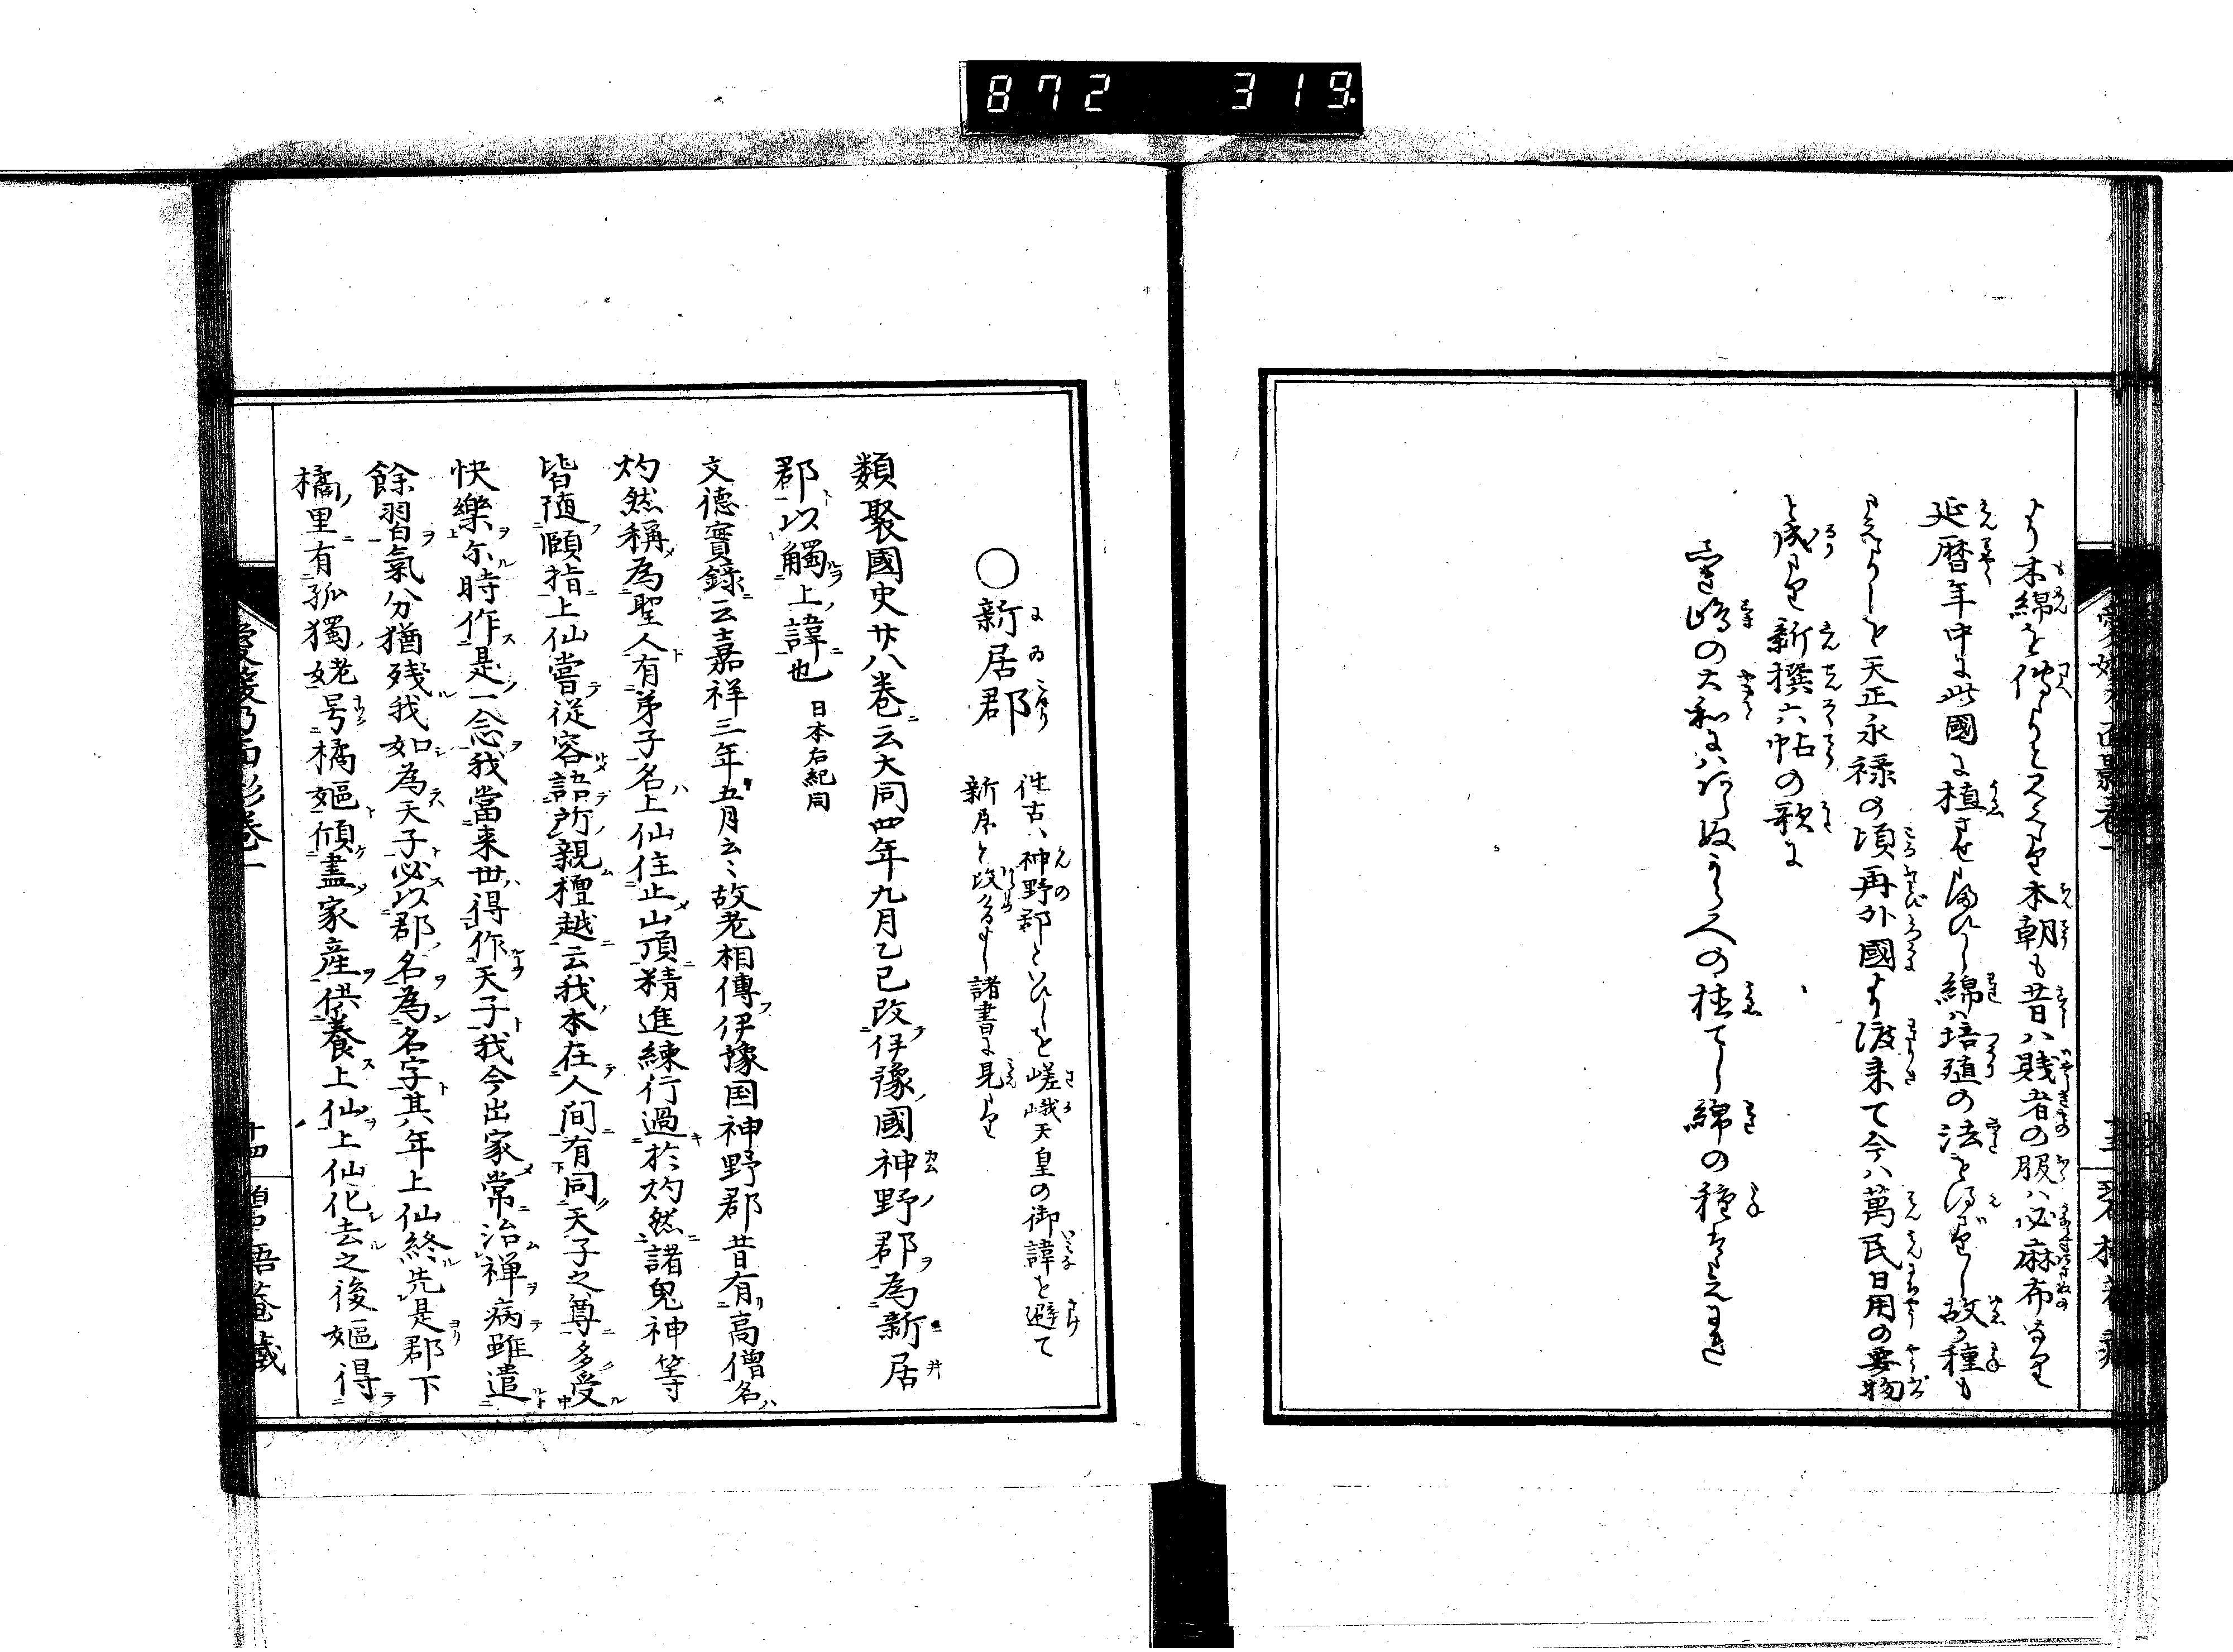 872 319
より木綿を傳
本朝も昔ハ賤者の服ハ必麻布
延暦年中に此國に植させ給ひし綿ハ培殖の法を得ざりし故に種も
を天正永禄の頃再外國より渡来て今ハ萬民日用の要物
と成り新撰六帖の歌に
の大和にハあらぬから人の植てし綿の種
○新居郡 往古ハ神野郡といひしを嵯峨天皇の御諱を避て
新居と改るよし諸書に見
類聚國史廿八巻云大同四年九月乙巳改伊豫國神野郡為新居
郡以觸上諱也 日本右紀同
文德實錄云嘉祥三年五月云々故老相傳伊豫国神野郡昔有高僧名
灼然稱為聖人有弟子名上仙住止山頂精進練行過於灼然諸鬼神等
皆随頤指上仙嘗従容語所親檀越云我本在人間有同天子之尊多受
快樂尓時作是一念我當来世得作天子我今出家常治禅病雖遣
餘習氣分猶残我如為天子必以郡名為名字其年上仙終先是郡下
橘里有孤獨姥号橘嫗傾盡家産供養上仙上仙化去之後嫗得
十四